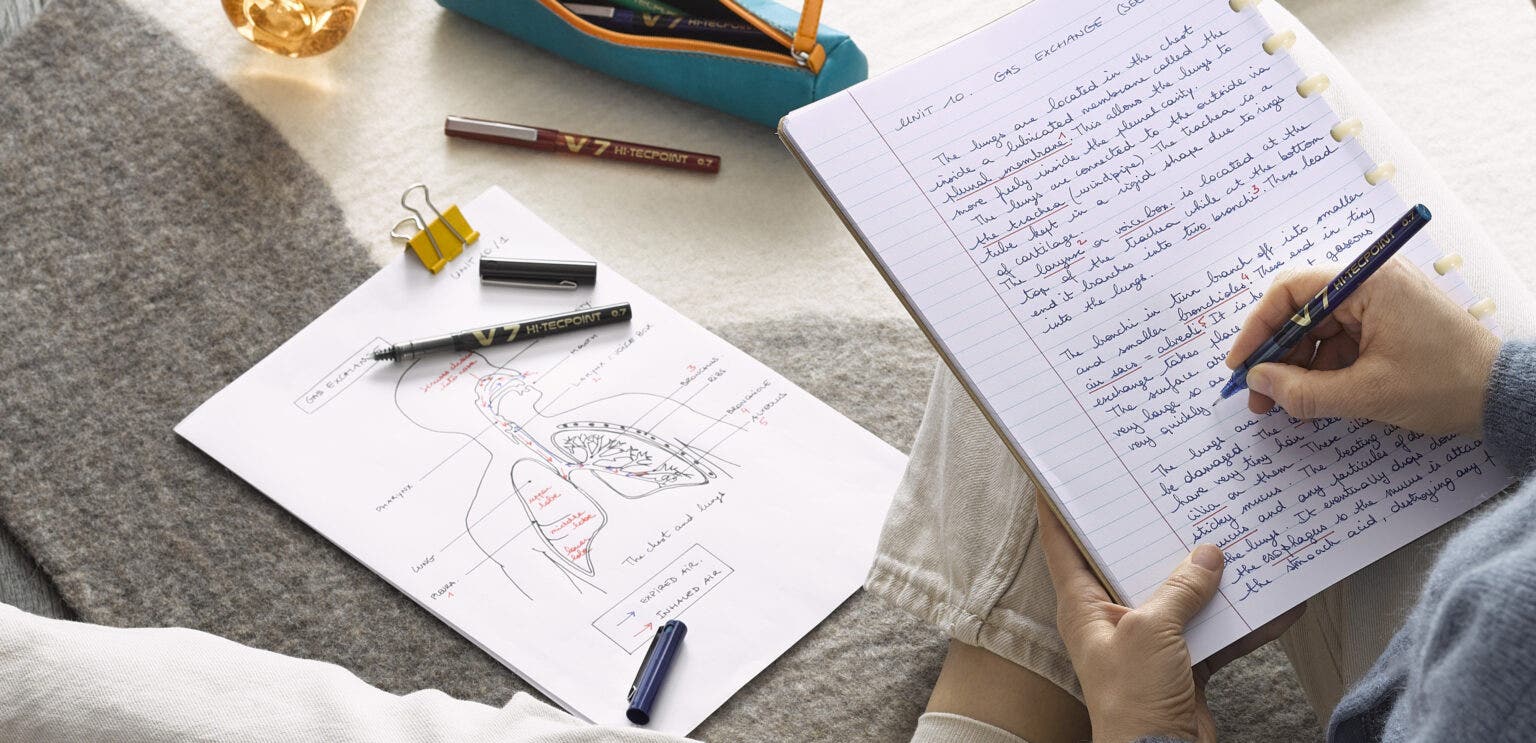 V7 HI-TECPOINT
V7 HI-TECPOINT 0.7
UNIT 10/1
V7 HI-TECPOINT 0.7
GAS EXCHAN
MOUTH
LARYNX / VOICE BOX
2
3
BRONCHUS
RIBS
BRONCHIOLE
4
ALVEOLUS
5
PHARYNX
upper lobe
middle lobe
lower lobe
LUNG
PLEURA
1
The chest and lungs
→ EXPIRED AIR.
→ INHALED AIR
UNIT 10. GAS EXCHANGE
The lungs are located in the chest
inside a lubricated membrane called the
pleural membrane.1 This allows the lungs to
move freely inside the pleural cavity.
The lungs are connected to the outside via
the trachea (windpipe). The trachea is a
tube kept in a rigid shape due to rings
of cartilage.
The larynx2 or voice box is located at the
top of the trachea while at the bottom
end it branches into two bronchi3. These lead
into the lungs.
The bronchi in turn branch off into smaller
and smaller bronchioles.4 These end in tiny
air sacs = alveoli5. It is he t gaseous
exchange takes place
The surface area
very large so a
very quickly
The lungs are
be damaged. The
have very tiny hair like
cilia on them. These cilia
sticky mucus. The beating
mucus and any particles of d
the lungs. It eventually drops down
the esophagus so the mucus is attac
the stomach acid, destroying any
V7 HI-TECPOINT 0.7